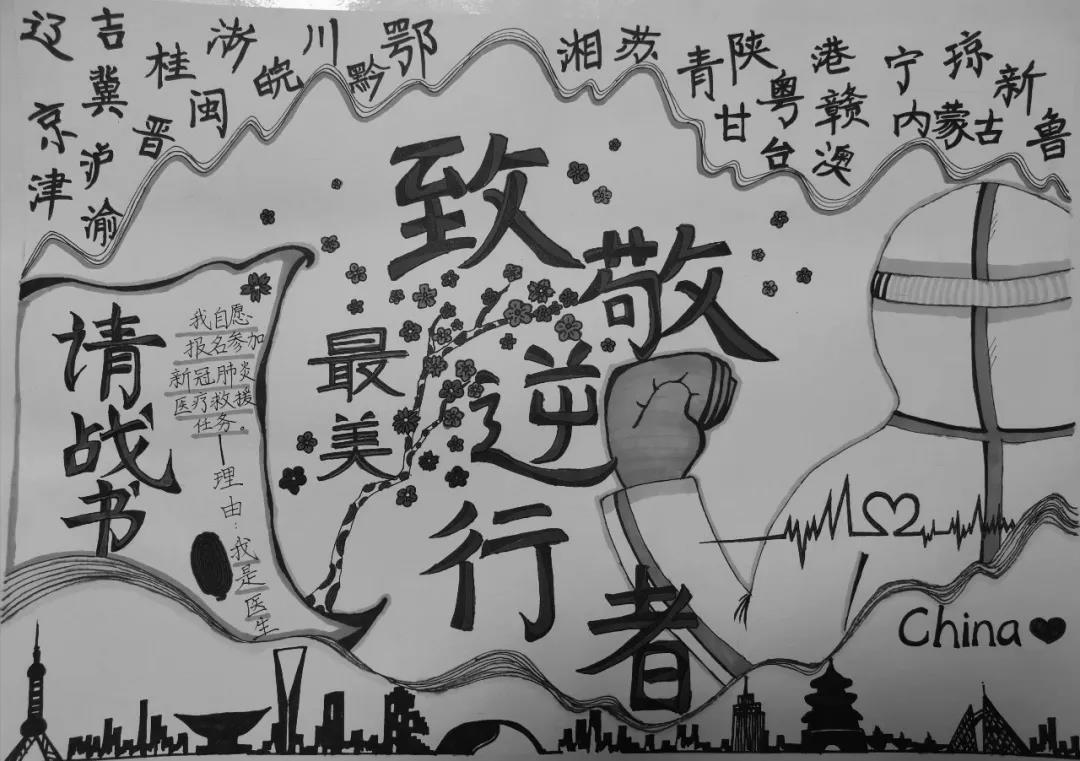 辽 吉 浙 川 鄂 湘 苏 青 陕 港 宁 琼 新
京 冀 桂 皖 黔 粤 赣 内蒙古 鲁
津 泸 晋 闽 甘 台 澳
渝
致敬
最美
逆行者
请战书
我自愿
报名参加
新冠肺炎
医疗救援
任务。
—理由:我是医生
China